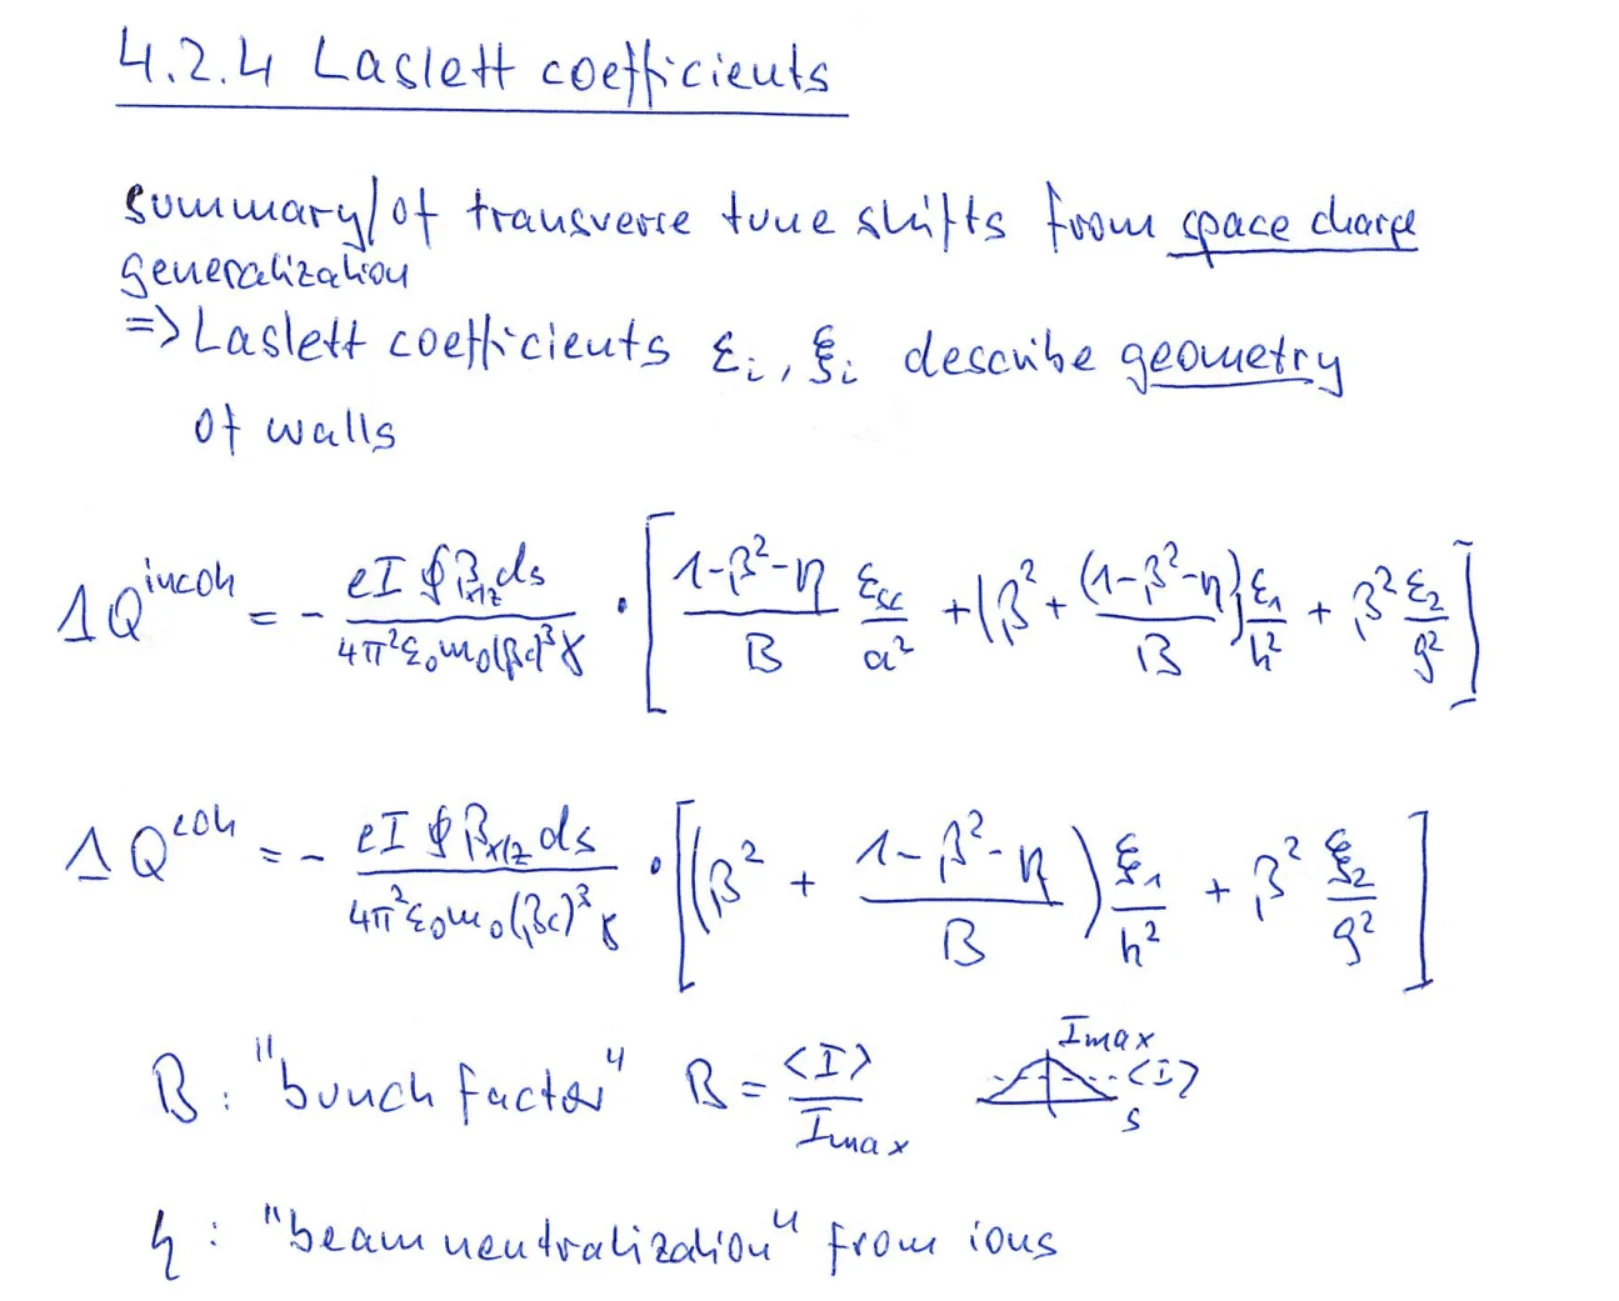 4.2.4 Laslett coefficients
summary/of transverse tune shifts from space charge
generalization
=> Laslett coefficients εᵢ, ξᵢ describe geometry
of walls
ΔQ^incoh = - (eI ∮β_x/z ds)/(4π²ε₀m₀(βc)³γ) · [ (1-β²-η)/B ε_sc/a² + (β² + (1-β²-η)/B) ε₁/h² + β² ε₂/g² ]
ΔQ^coh = - (eI ∮β_x/z ds)/(4π²ε₀m₀(βc)³γ) · [ (β² + (1-β²-η)/B) ξ₁/h² + β² ξ₂/g² ]
B: "bunch factor" B = <I>/Imax Imax <I> s
η: "beam neutralization" from ions